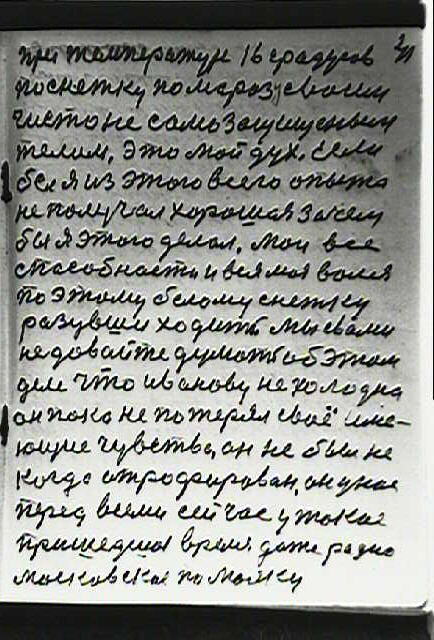 при температуре 16 градусов
поснежку поморозу своим
чисто не само защищеным
телим, это мой дух. если
бы я из этого всего опыта
не получал хорошая зачем
бы я этого делал, мои все
способности и вся моя воля
по этому белому снежку
разувши ходить мы свами
недовайте думоть об этом
деле что иванову не холодна
он пока не потерял своё име-
ющие чувства, он не был не
когда отрофирован, он у нас
перед всеми сейчас у такое
пришедшая время даже радио
московское по маяку